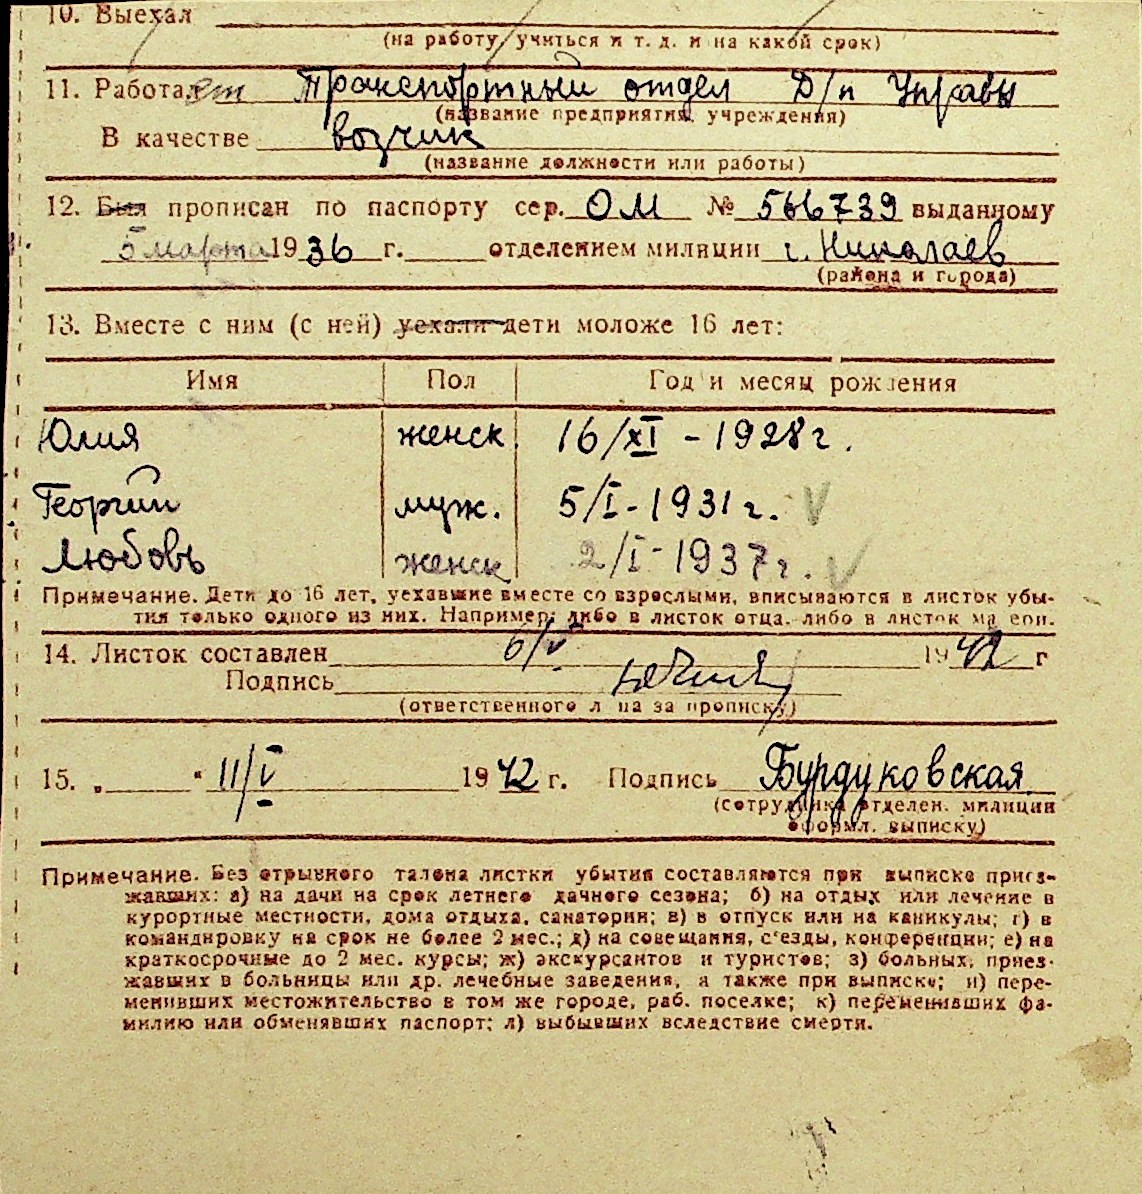 10. Выехал
(на работу, учиться и т. д. и на какой срок)
11. Работает Транспортный отдел Д/п Управы
(название предприятия, учреждения)
В качестве возчик
(название должности или работы)
12. Был прописан по паспорту сер. ОМ № 566739 выданному
5 марта 1936 г. отделением милиции г. Николаев
(района и города)
13. Вместе с ним (с ней) уехали дети моложе 16 лет:
Имя Пол Год и месяц рождения
Юлия женск. 16/XI - 1928 г.
Георгий муж. 5/I - 1931 г. V
Любовь женск 2/I - 1937 г. V
Примечание. Дети до 16 лет, уехавшие вместе со взрослыми, вписываются в листок убы-
тия только одного из них. Например: либо в листок отца, либо в листок ма ери.
14. Листок составлен 6/V 1942 г
Подпись
(ответственного л ца за прописку)
15. „ “ 11/V 1942 г. Подпись Бурдуковская
(сотрудника отделен. милиции
оформл. выписку)
Примечание. Без отрывного талона листки убытия составляются при выписке приез-
жавших: а) на дачи на срок летнего дачного сезона; б) на отдых или лечение в
курортные местности, дома отдыха, санатории; в) в отпуск или на каникулы; г) в
командировку на срок не более 2 мес.; д) на совещания, с'езды, конференции; е) на
краткосрочные до 2 мес. курсы; ж) экскурсантов и туристов; з) больных, приез-
жавших в больницы или др. лечебные заведения, а также при выписке; и) пере-
менивших местожительство в том же городе, раб. поселке; к) переменивших фа-
милию или обменявших паспорт; л) выбывших вследствие смерти.